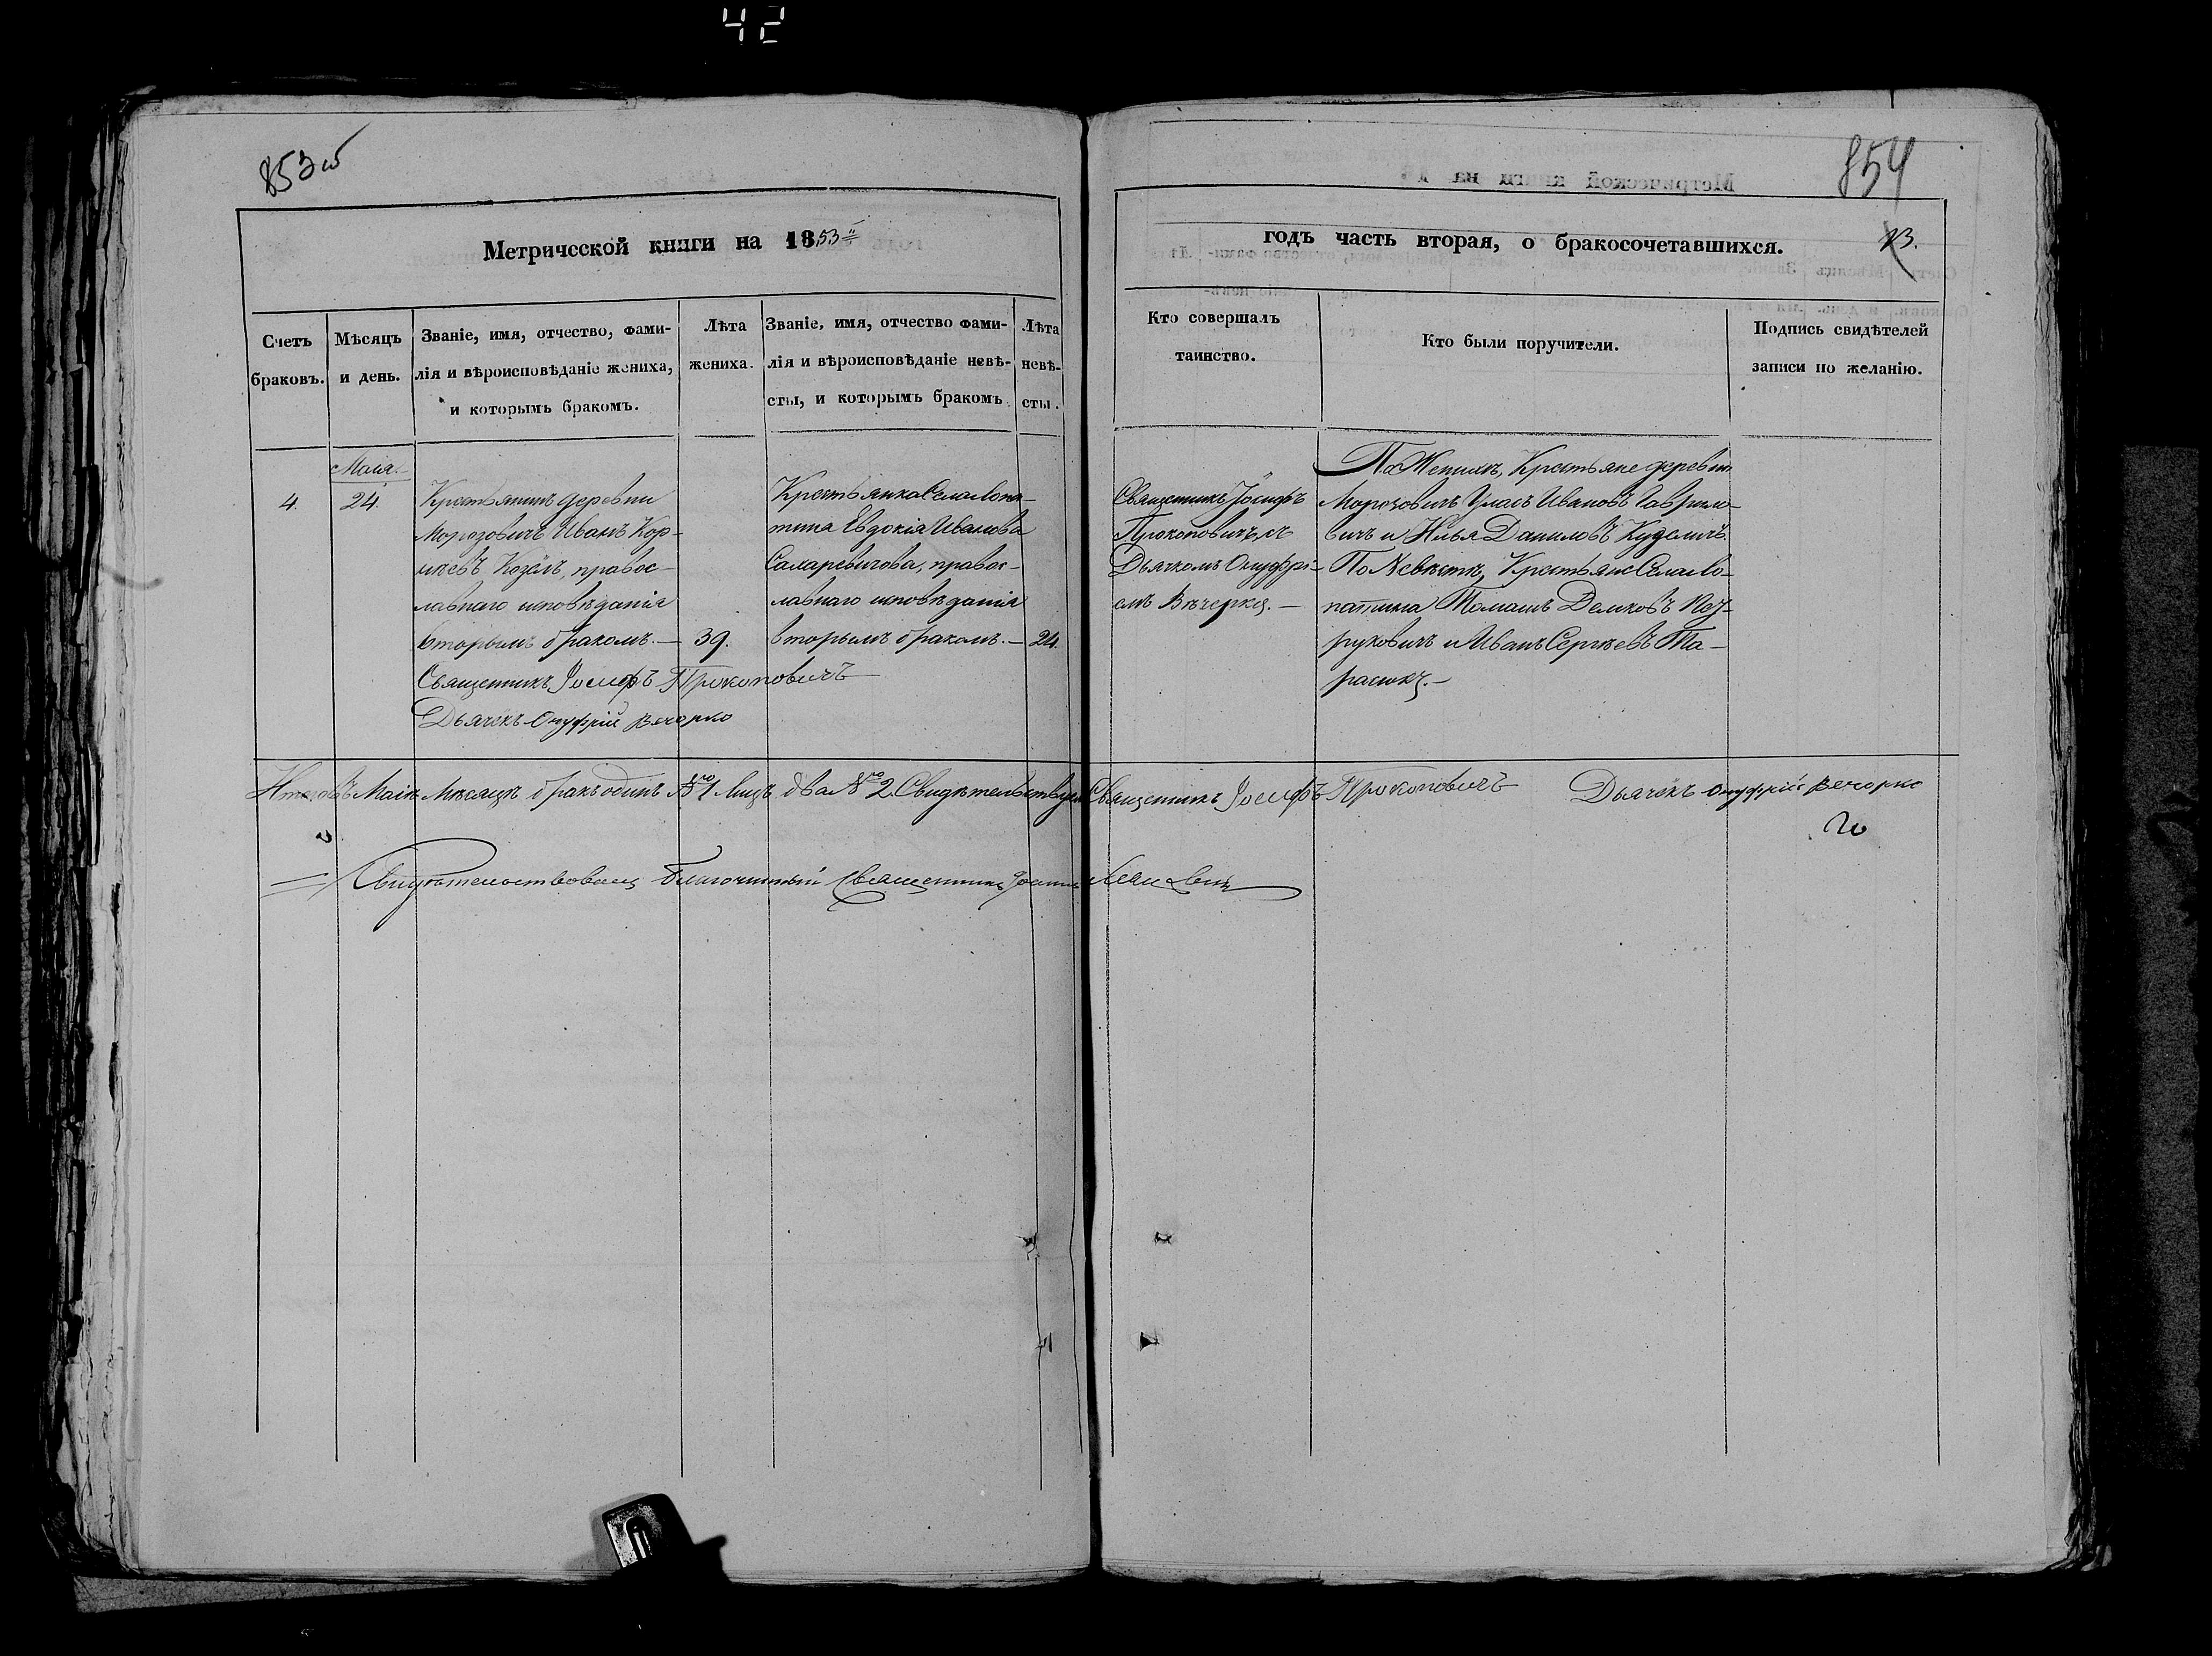 42
853 об
854
Метрической книги на 1853й
годъ часть вторая, о бракосочетавшихся.
23.
Счетъ браковъ.
Мѣсяцъ и день.
Званіе, имя, отчество, фами-
лія и вѣроисповѣданіе жениха,
и которымъ бракомъ.
Лѣта
жениха.
Званіе, имя, отчество фами-
лія и вѣроисповѣданіе невѣ-
сты, и которымъ бракомъ.
Лѣта
невѣ-
сты.
Кто совершалъ
таинство.
Кто были поручители.
Подпись свидѣтелей
записи по желанію.
Маія.
4.
24.
Крестьянинъ деревни
Морозовичъ Иванъ Кор-
нѣевъ Козёлъ, правос-
лавнаго исповѣданія
вторымъ бракомъ. —
39.
Священникъ Іосифъ Прокоповичъ
Дьячекъ Онуфрій Вечорко
Крестьянка Села Лопа-
тина Евдокія Иванова
правос-
лавнаго исповѣданія
вторымъ бракомъ. —
24.
Священникъ Іосифъ
Прокоповичъ, съ
Дьячкомъ Онуфрі-
емъ Вѣчеркą. —
По Женихѣ, Крестьяне деревни
Морозовичъ Уласъ Ивановъ Гаврило-
вичъ и Илья Даниловъ Куделичъ.
По Невѣстѣ, Крестьяне Села Ло-
патина Томашъ Демковъ
и Иванъ Сергѣевъ Та-
расюкъ. —
Итого въ Маіѣ Мѣсяцѣ бракъ одинъ №1 Лицъ два №2. Священникъ Іосифъ Прокоповичъ Дьячекъ Онуфрій Вечорко
Свидѣтельствовалъ Благочинный Священникъ Іоаннъ